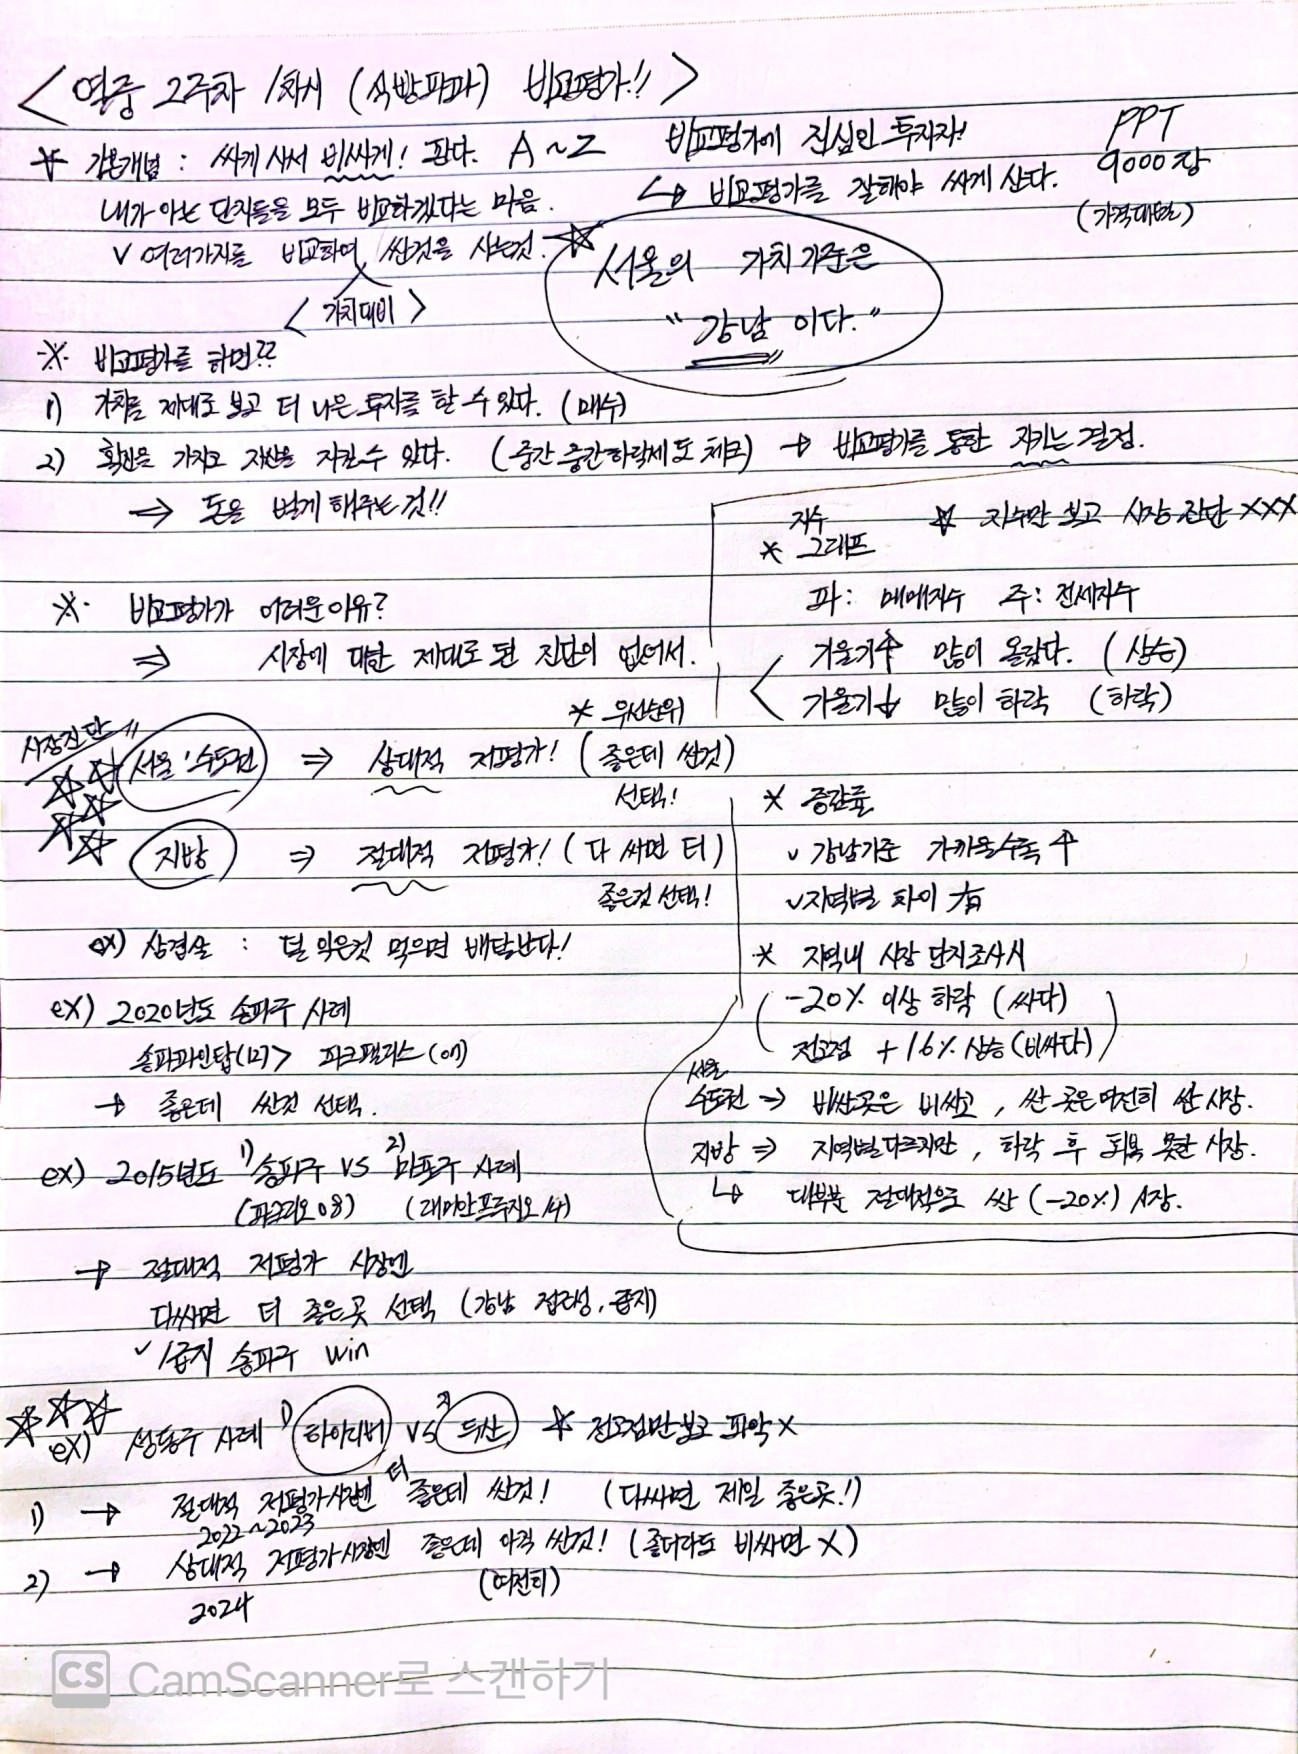 < 열중 2주차 1차시 (식빵파파) 비교평가!! >
* 기본개념 : 싸게 사서 비싸게! 판다. A ~ Z
비교평가에 진심인 투자자!
↳ 비교평가를 잘해야 싸게 산다.
PPT
9000장
(가격대별)
내가 아는 단지들을 모두 비교하겠다는 마음.
v 여러가지를 비교하여 싼것을 사는것.
< 가치대비 >
☆ 서울의 가치기준은
"강남 이다."
※ 비교평가를 하면??
1) 가치를 제대로 보고 더 나은 투자를 할 수 있다. (매수)
2) 확신을 가지고 자산을 지킬수 있다. (중간중간하락체도 체크) → 비교평가를 통한 지키는 결정.
⇒ 돈을 벌게 해주는 것!!
※ 비교평가가 어려운이유?
⇒ 시장에 대한 제대로 된 진단이 없어서.
지수
* 그래프
☆ 지수만 보고 시장진단 XXX
파: 매매지수 주: 전세지수
기울기↑ 많이 올랐다. (상승)
기울기↓ 많이 하락 (하락)
시장진단!!
* 우선순위
서울·수도권 ⇒ 상대적 저평가! (좋은데 싼것)
선택!
지방 ⇒ 절대적 저평가! (다 싸면 더)
좋은것 선택!
ex) 삼겹살 : 덜 익은것 먹으면 배탈난다!
* 증감률
v 강남기준 가까울수록 ↑
v 지역별 차이 有
* 지역내 시장 단지조사시
-20% 이상 하락 (싸다)
전고점 +16% 상승 (비싸다)
서울
수도권 ⇒ 비싼곳은 비싸고, 싼 곳은 여전히 싼 시장.
지방 ⇒ 지역별다르지만, 하락 후 회복 못한 시장.
↳ 대부분 절대적으로 싼 (-20%) 시장.
ex) 2020년도 송파구 사례
송파파인탑(12) > 파크팰리스(07)
→ 좋은데 싼것 선택.
ex) 2015년도 1) 송파구 VS 2) 마포구 사례
(파크리오08) (래미안푸르지오14)
→ 절대적 저평가 시장엔
다싸면 더 좋은곳 선택 (강남 접근성, 급지)
v 1급지 송파구 win
ex) 성동구 사례 1) 하이리버 VS 2) 두산 ☆ 전고점만보고 파악 X
1) → 절대적 저평가시장엔 더 좋은데 싼것! (다싸면 제일 좋은곳!)
2022~2023
2) → 상대적 저평가시장엔 좋은데 아직 싼것! (좋더라도 비싸면 X)
2024
(여전히)
CS CamScanner로 스캔하기